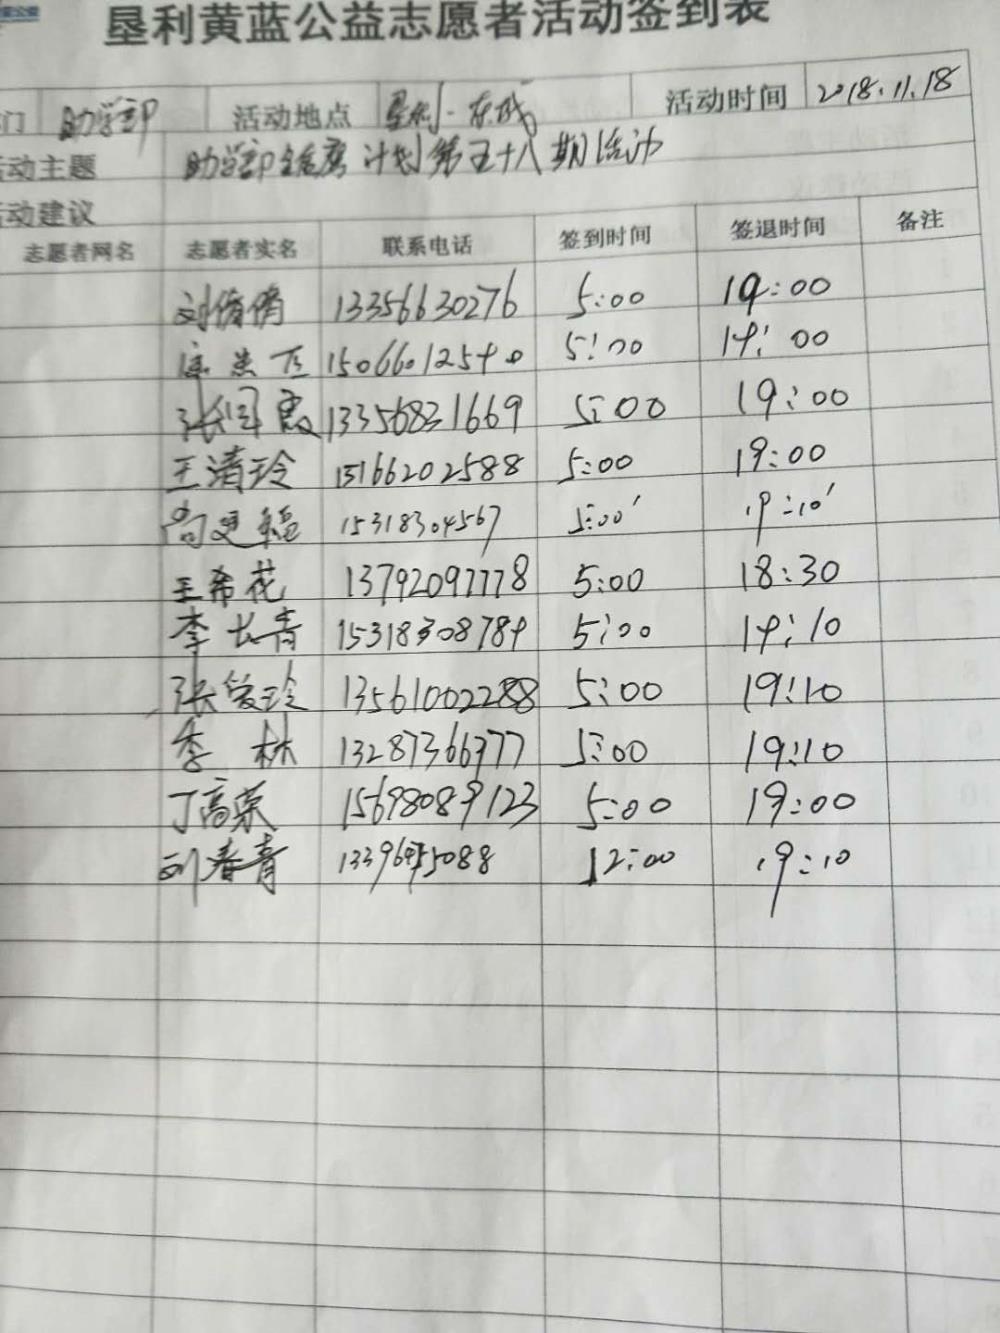 垦利黄蓝公益志愿者活动签到表
门 助学部 活动地点 垦利·东城 活动时间 2018.11.18
活动主题 助学部 计划第五十八期活动
活动建议
志愿者网名 志愿者实名 联系电话 签到时间 签退时间 备注
刘倩倩 13356630276 5:00 19:00
15066012540 5:00 19:00
张 霞 13356831669 5:00 19:00
王清玲 15166202588 5:00 19:00
尚更 15318304567 5:00' 19:10'
王希花 13792097778 5:00 18:30
李长青 15318308789 5:00 19:10
张爱玲 13561002288 5:00 19:10
季 林 13287366377 5:00 19:10
丁高荣 15698089123 5:00 19:00
刘春青 12:00 19:10